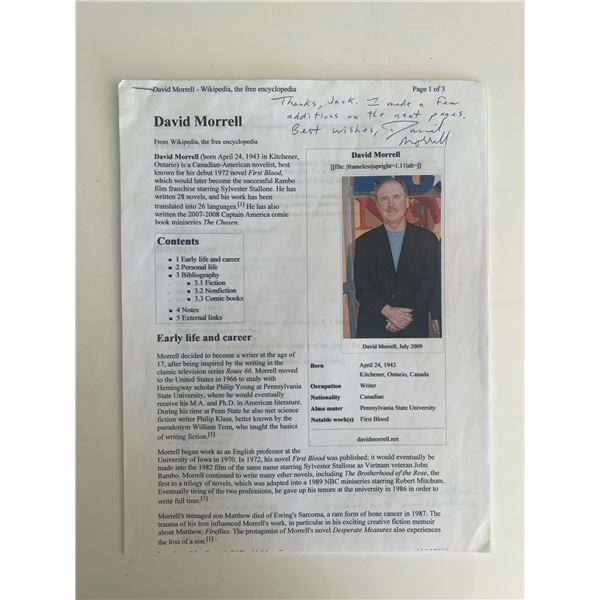 David Morrell - Wikipedia, the free encyclopedia
Page 1 of 3
Thanks, Jack. I made a few
additions on the next pages.
Best wishes, David
Morrell
David Morrell
From Wikipedia, the free encyclopedia
David Morrell (born April 24, 1943 in Kitchener,
Ontario) is a Canadian-American novelist, best
known for his debut 1972 novel First Blood,
which would later become the successful Rambo
film franchise starring Sylvester Stallone. He has
written 28 novels, and his work has been
translated into 26 languages.[1] He has also
written the 2007-2008 Captain America comic
book miniseries The Chosen.
Contents
1 Early life and career
2 Personal life
3 Bibliography
3.1 Fiction
3.2 Nonfiction
3.3 Comic books
4 Notes
5 External links
Early life and career
Morrell decided to become a writer at the age of
17, after being inspired by the writing in the
classic television series Route 66. Morrell moved
to the United States in 1966 to study with
Hemingway scholar Philip Young at Pennsylvania
State University, where he would eventually
receive his M.A. and Ph.D. in American literature.
During his time at Penn State he also met science
fiction writer Philip Klass, better known by the
pseudonym William Tenn, who taught the basics
of writing fiction.[1]
David Morrell
[[file: |frameless|upright=1.11|alt=]]
David Morrell, July 2009
Born April 24, 1943
Kitchener, Ontario, Canada
Occupation Writer
Nationality Canadian
Alma mater Pennsylvania State University
Notable work(s) First Blood
davidmorrell.net
Morrell began work as an English professor at the
University of Iowa in 1970. In 1972, his novel First Blood was published; it would eventually be
made into the 1982 film of the same name starring Sylvester Stallone as Vietnam veteran John
Rambo. Morrell continued to write many other novels, including The Brotherhood of the Rose, the
first in a trilogy of novels, which was adapted into a 1989 NBC miniseries starring Robert Mitchum.
Eventually tiring of the two professions, he gave up his tenure at the university in 1986 in order to
write full time.[1]
Morrell's teenaged son Matthew died of Ewing's Sarcoma, a rare form of bone cancer in 1987. The
trauma of his loss influenced Morrell's work, in particular in his exciting creative fiction memoir
about Matthew, Fireflies. The protagonist of Morrell's novel Desperate Measures also experiences
the loss of a son.[1]